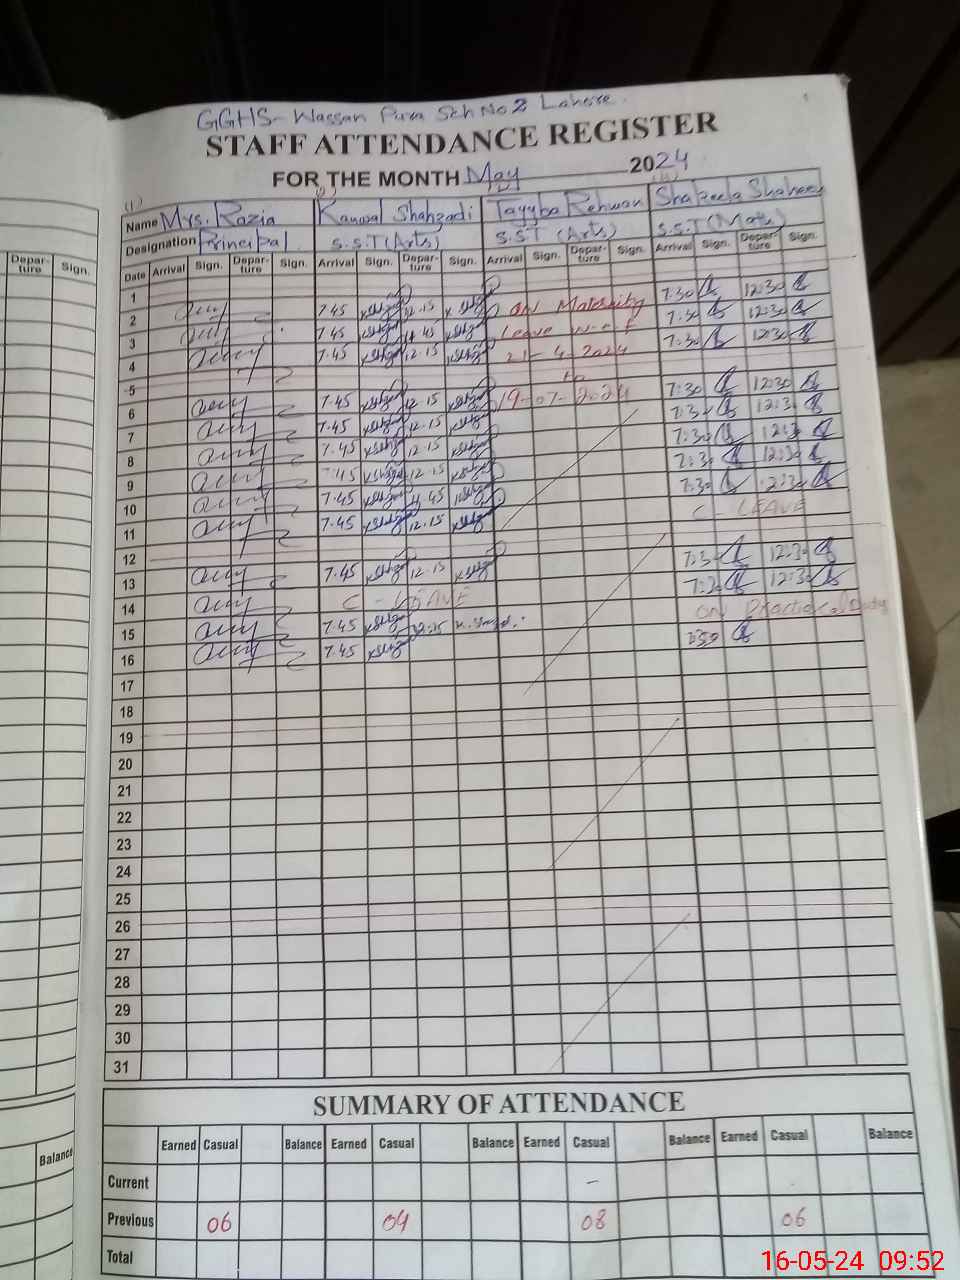 GGHS- Wassan Pura Sch No 2 Lahore.
STAFF ATTENDANCE REGISTER
FOR THE MONTH May 2024
(1)
Name Mrs. Razia Kanwal Shahzadi Tayyba Rehman Shakeela Shaheen
Designation Principal. S.S.T (Arts) S.S.T (Arts) S.S.T (Math)
Depar-ture Sign. Date Arrival Sign. Depar-ture Sign. Arrival Sign. Depar-ture Sign. Arrival Sign. Depar-ture Sign. Arrival Sign. Depar-ture Sign.
1
2 7.45 12.15 ON Maternity 7:30 12:30
3 7.45 Leave w.e.f 7:30 12:30
4 7.45 12.15 21-4-2024 7:30 12:30
5 to
6 7.45 12.15 19-07-2024 7:30 12:30
7 7.45 12.15 7:3 12:3
8 7.45 12.15 7:30 12:3
9 7.45 12.15 7:3 12:30
10 7.45 7:30 12:3
11 7.45 12.15 C - LEAVE
12
13 7.45 12.15 7:3 12:3
14 C - LEAVE 7:3 12:3
15 7.45 12:15 ON Practical Duty
16 7.45
17
18
19
20
21
22
23
24
25
26
27
28
29
30
31
SUMMARY OF ATTENDANCE
Balance Earned Casual Balance Earned Casual Balance Earned Casual Balance Earned Casual Balance
Current -
Previous 06 04 08 06
Total
16-05-24 09:52